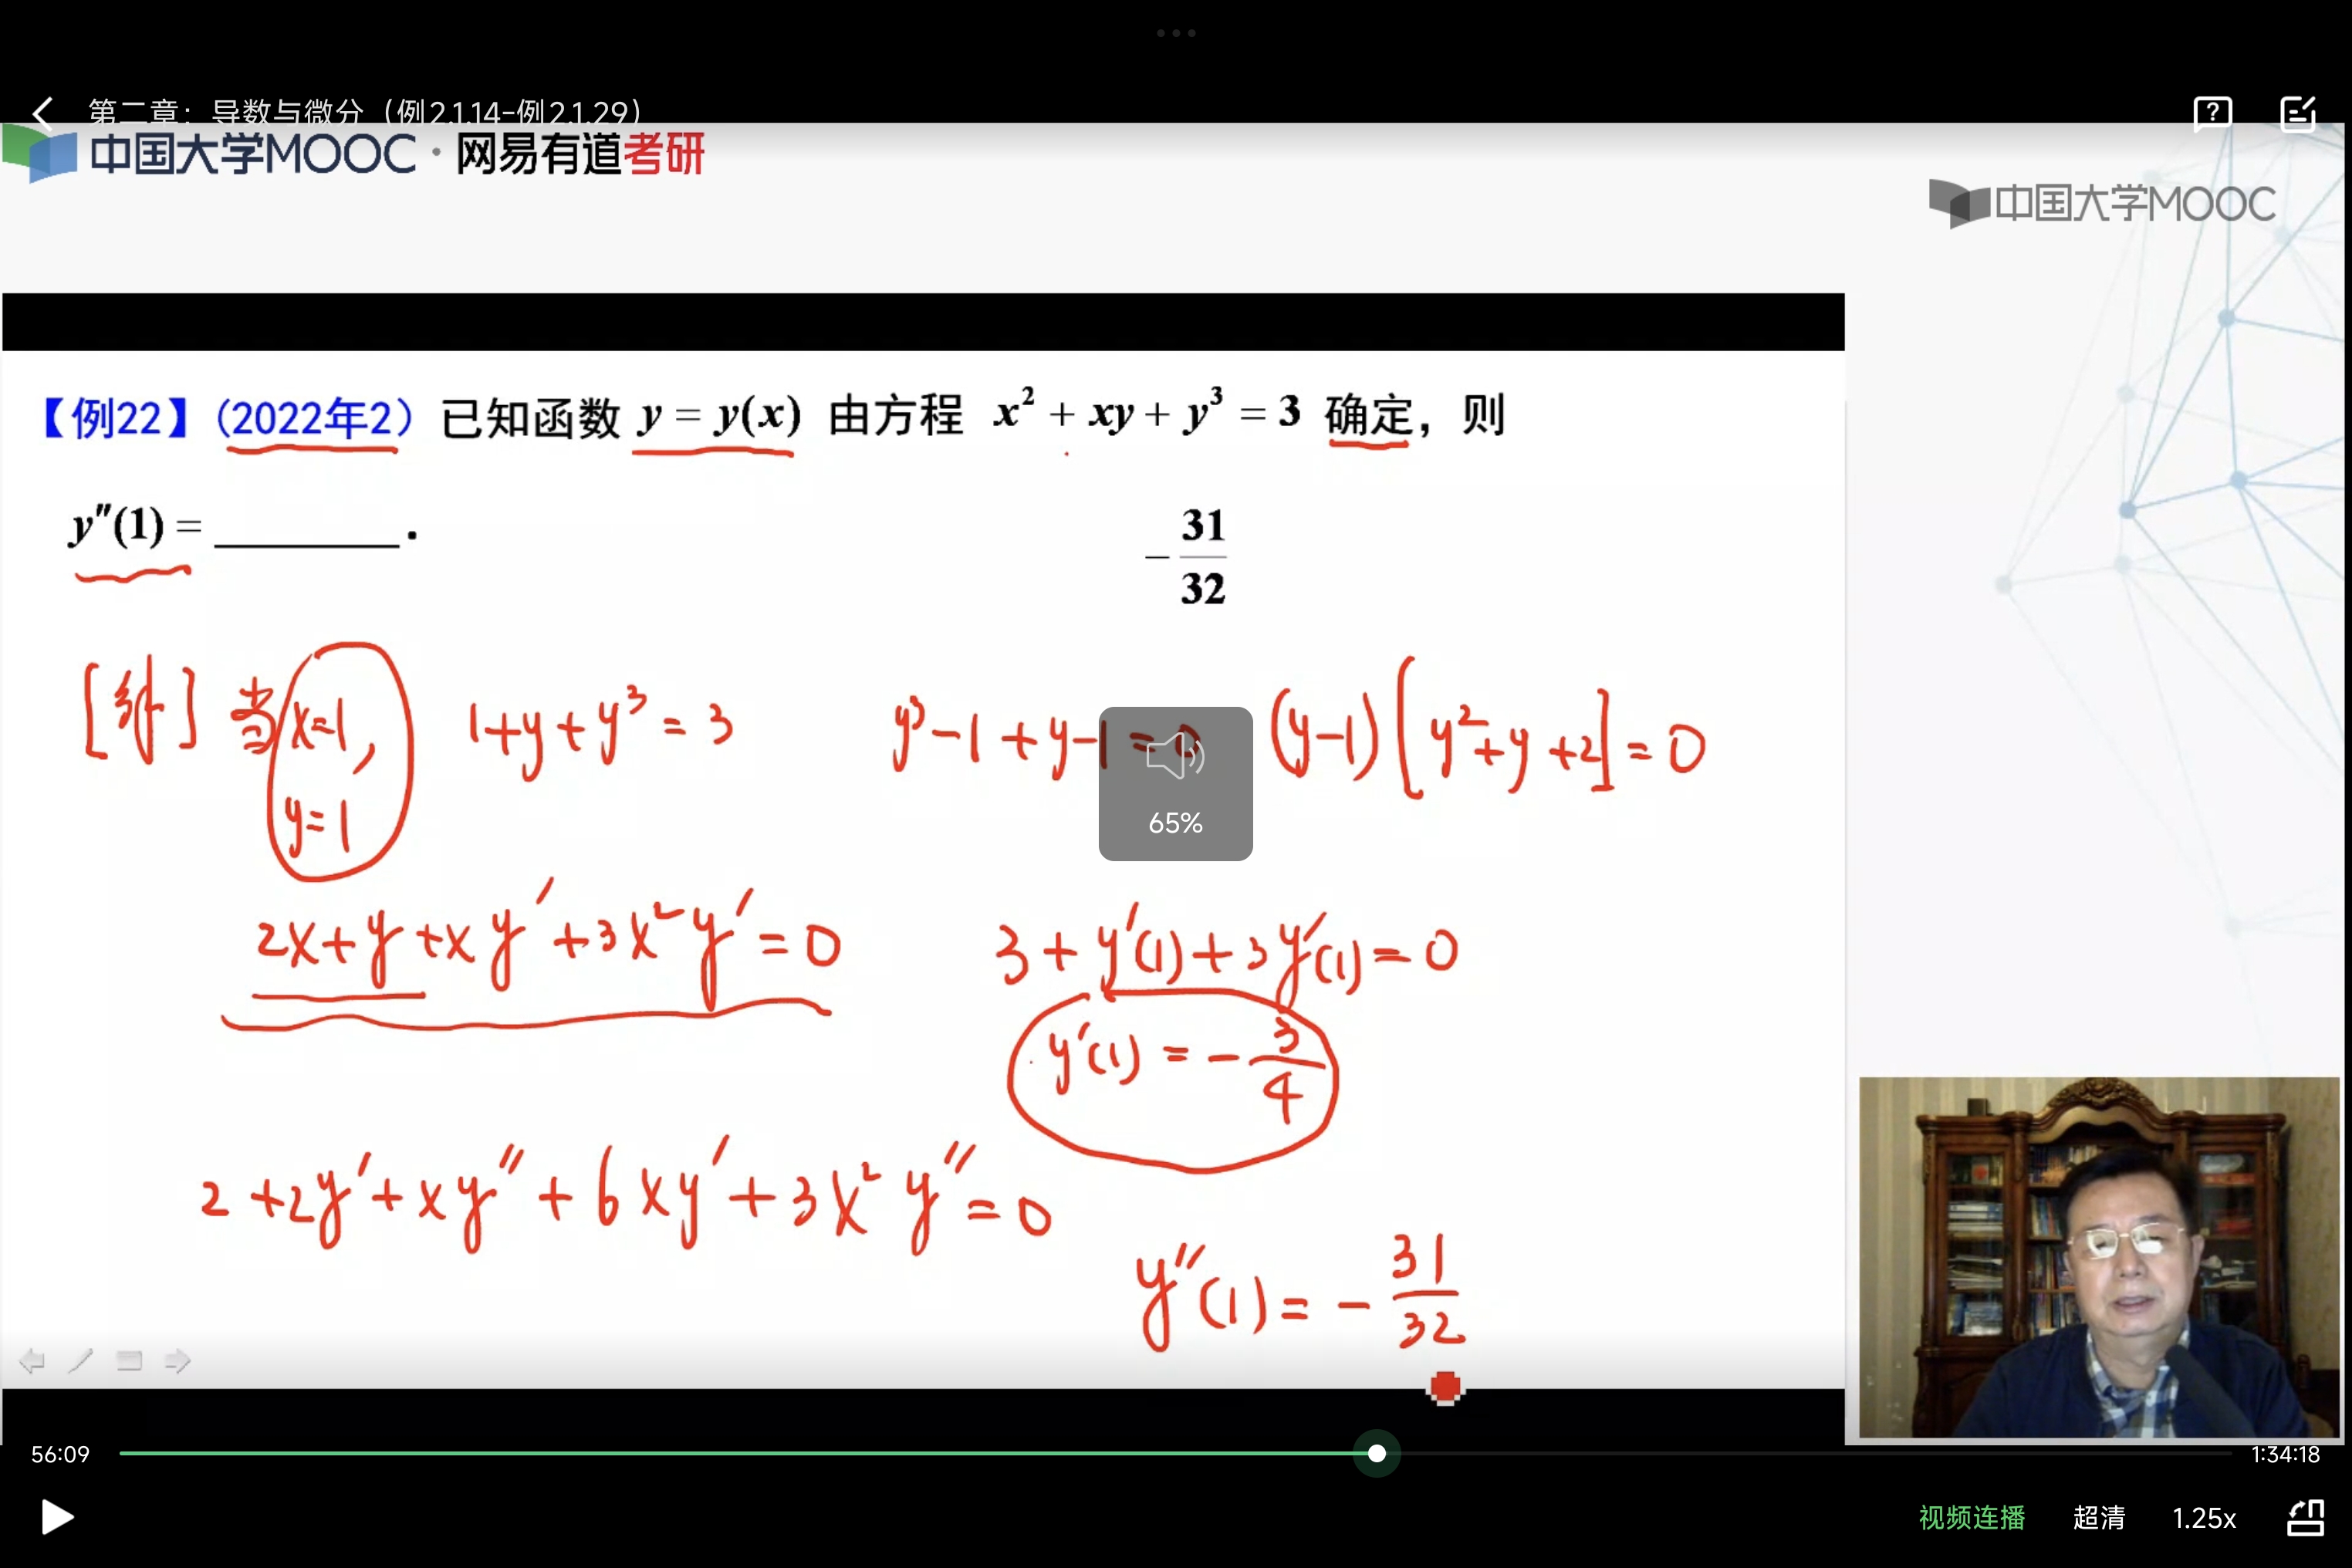 第二章：导数与微分（例2.1.14-例2.1.29）
中国大学MOOC · 网易有道考研
中国大学MOOC
【例22】（2022年2）已知函数 y = y(x) 由方程 x² + xy + y³ = 3 确定，则
y″(1) = ________.
− 31/32
[解] 当 x=1, 1+y+y³=3 y³−1+y−1=0 (y−1)[y²+y+2]=0
y=1
65%
2x+y+xy′+3x²y′=0 3+y′(1)+3y′(1)=0
y′(1)=−3/4
2+2y′+xy″+6xy′+3x²y″=0
y″(1)=−31/32
56:09 1:34:18
视频连播 超清 1.25x